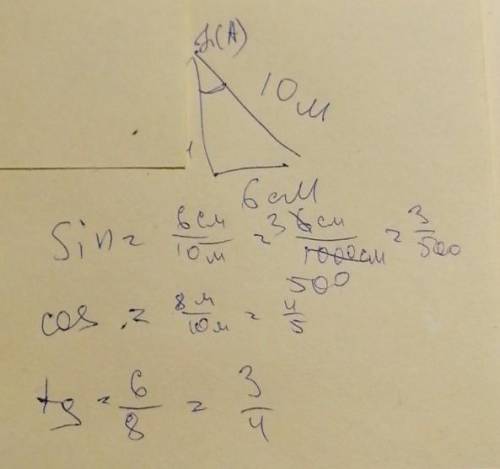 (A)
10м
6см
Sin = 6см/10м = 3 6см/1000см = 3/500
500
cos = 8м/10м = 4/5
tg = 6/8 = 3/4